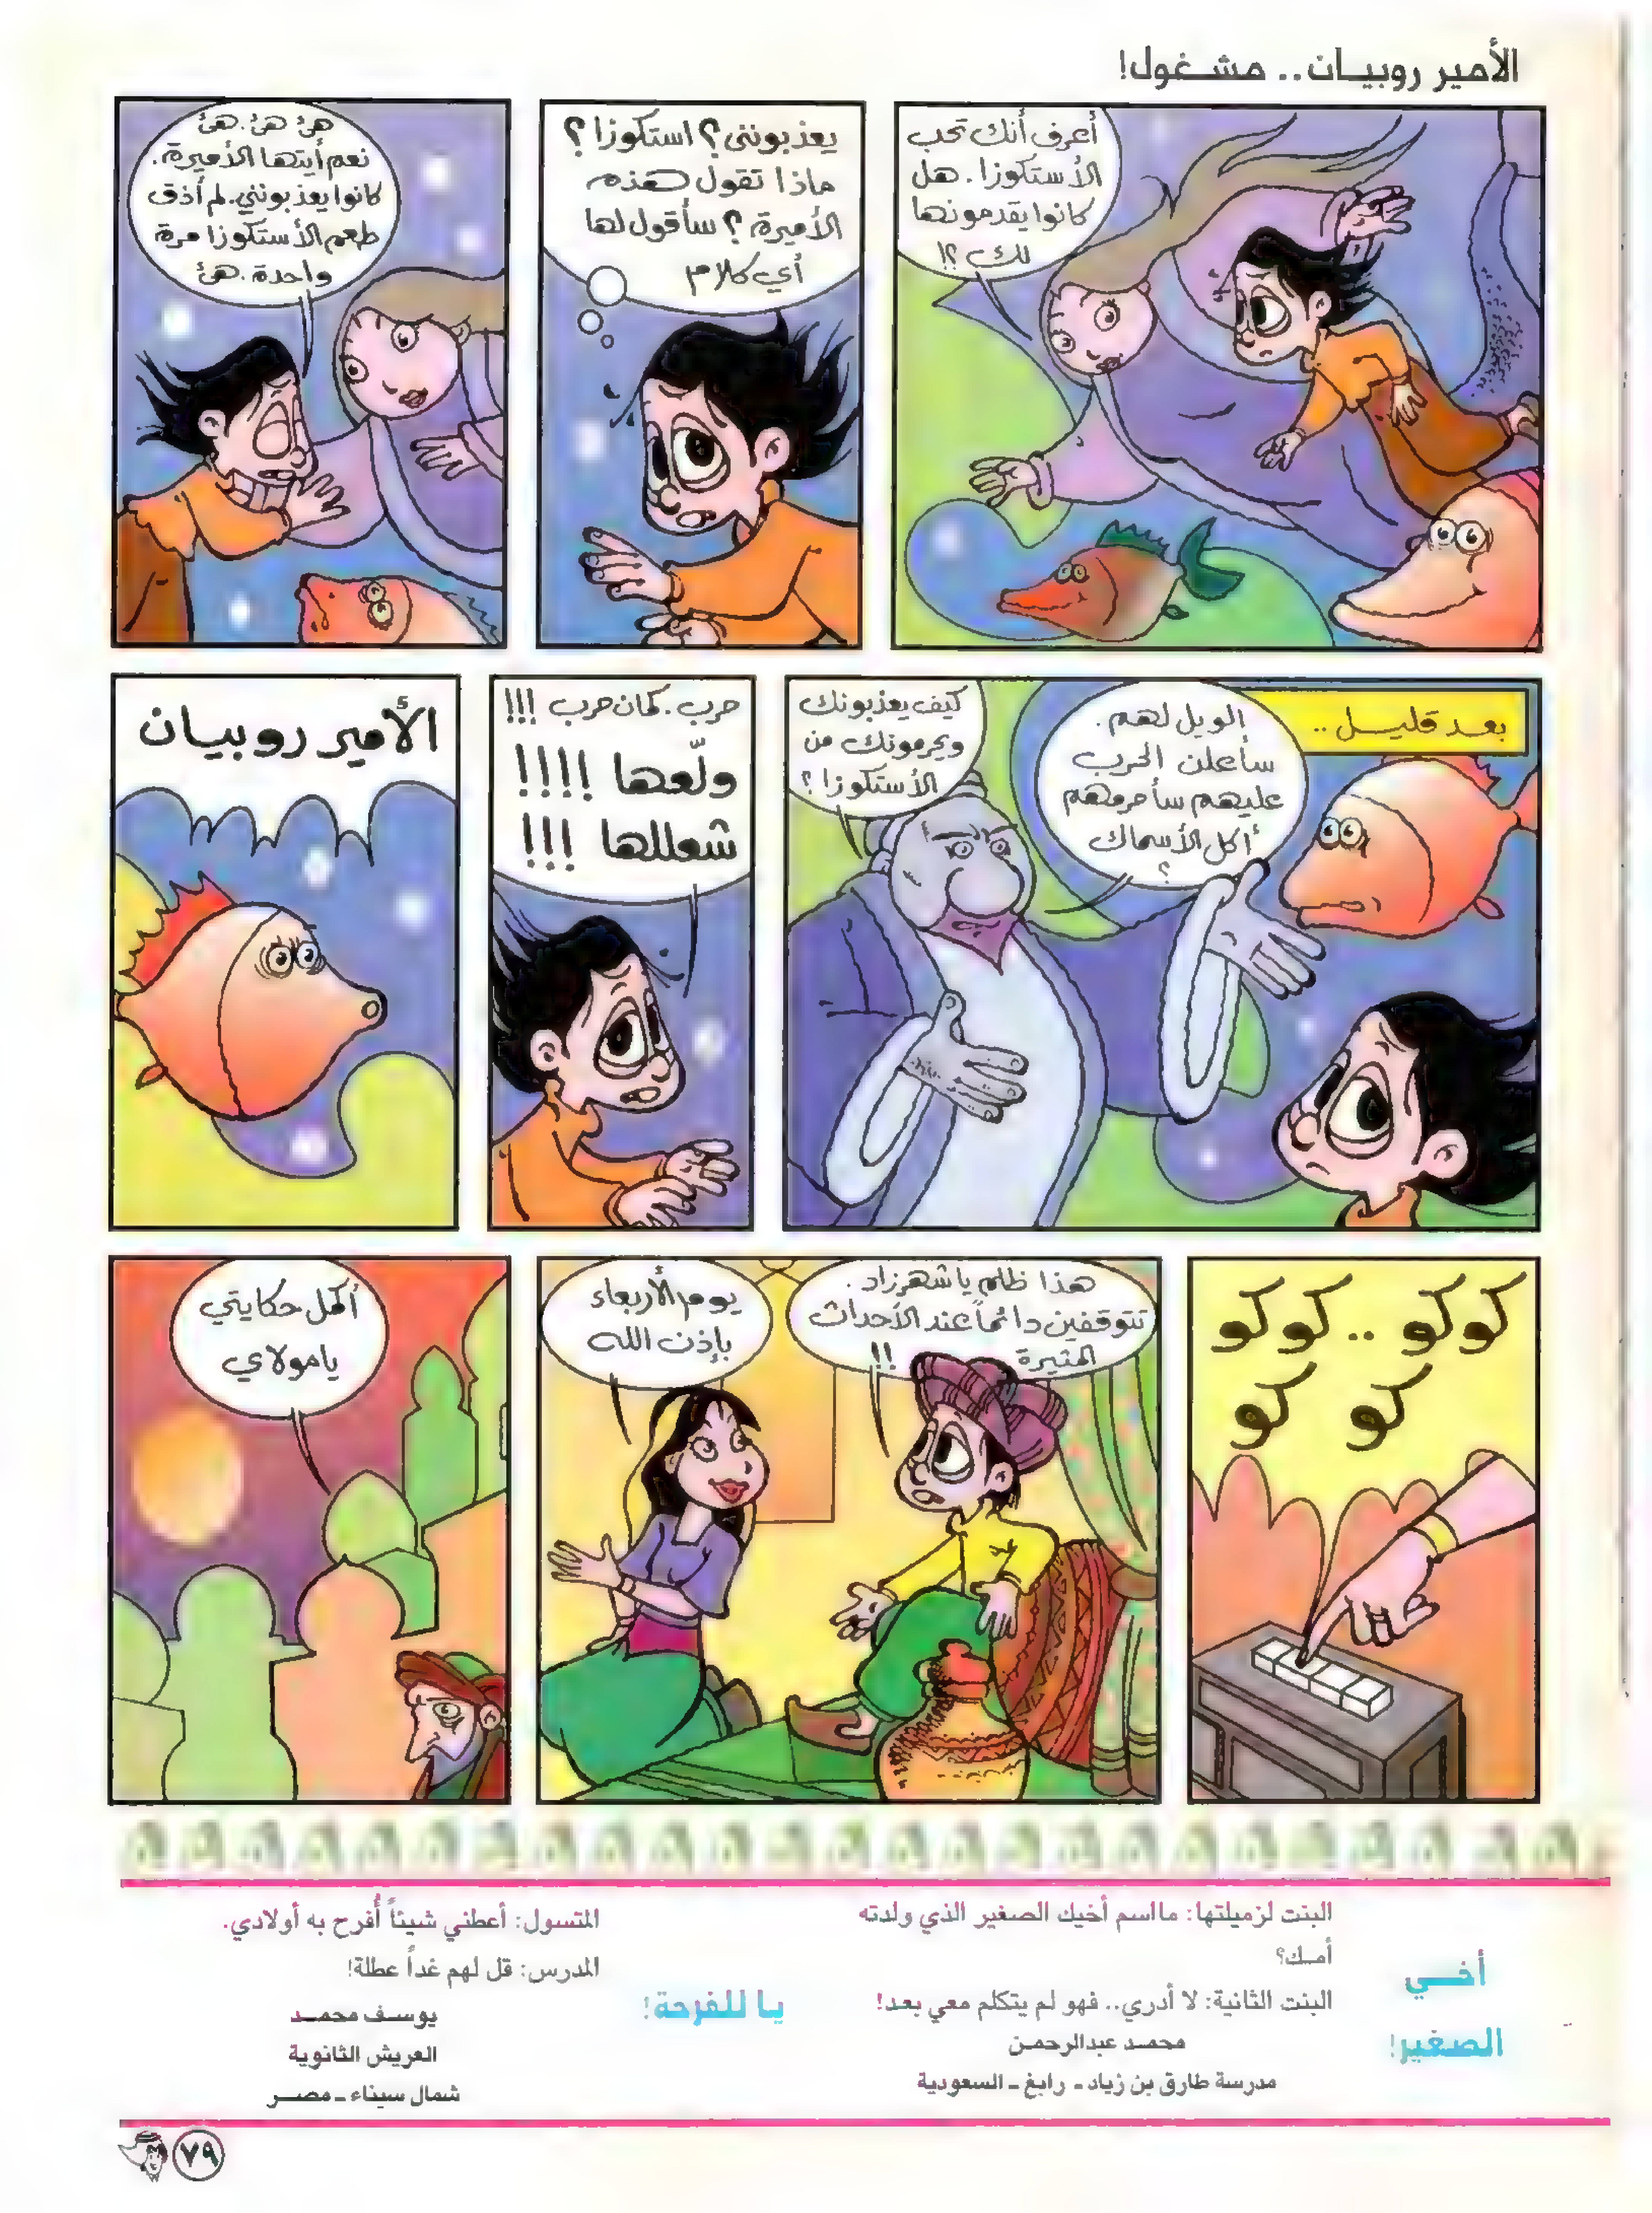 الأمير روبيـان.. مشـغول!
أعرف أنك تحب
الأستكوزا. هل
كانوا يقدمونها
لك ؟!
يعذبونني؟ استكوزا؟
ماذا تقول هذه
الأميرة؟ سأقول لها
أي كلام
هئ هئ. هئ
نعم أيتها الأميرة.
كانوا يعذبونني. لم أذق
طعم الأستكوزا مرة
واحدة. هئ
بعد قليل ..
الويل لهم.
سأعلن الحرب
عليهم سأحرمهم
أكل الأسماك
؟
كيف يعذبونك
ويحرمونك من
الأستكوزا؟
حرب. كمان حرب !!!
ولّعها !!!!
شعللها !!!
الأمير روبيان
كوكو .. كوكو
كو كو
هذا ظلم يا شهرزاد.
تتوقفين دائماً عند الأحداث
المثيرة !!
يوم الأربعاء
بإذن الله
أكمل حكايتي
يا مولاي
أخـــي
الصغير!
البنت لزميلتها: ما اسم أخيك الصغير الذي ولدته
أمـك؟
البنت الثانية: لا أدري.. فهو لم يتكلم معي بعد!
محمـد عبدالرحمـن
مدرسة طارق بن زياد ـ رابغ ـ السعودية
يـا للفرحة!
المتسول: أعطني شيئاً أُفرح به أولادي.
المدرس: قل لهم غداً عطلة!
يوسـف محمــد
العريش الثانوية
شمال سيناء ـ مصــر
٧٩